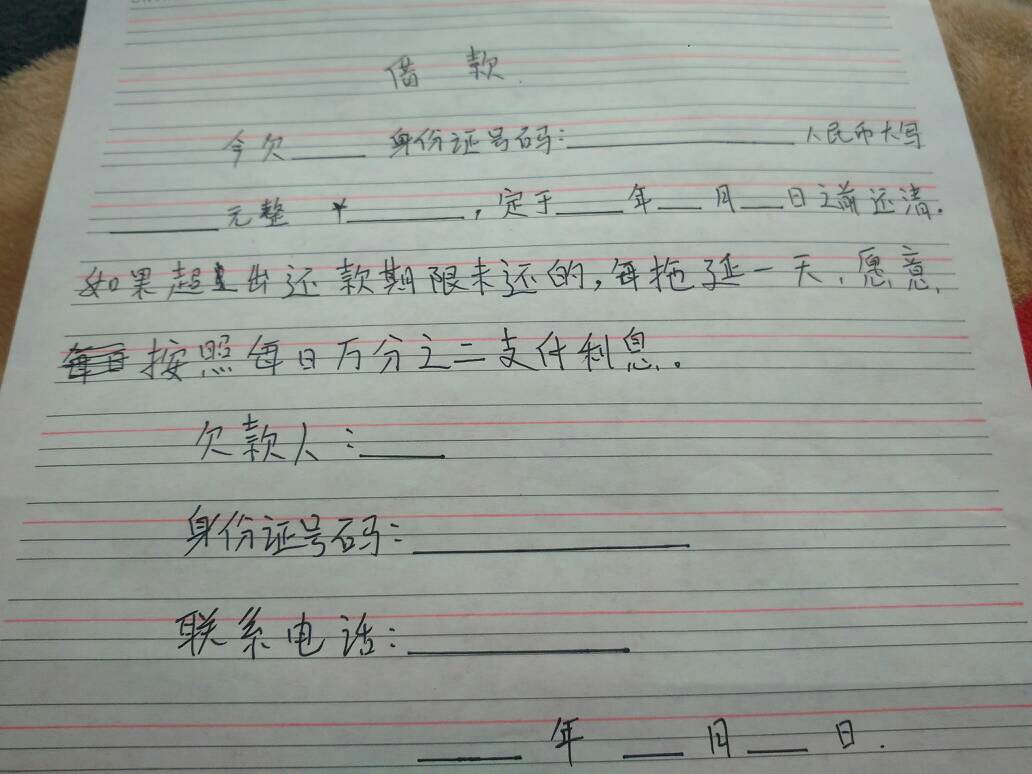 借 款
今欠____ 身份证号码:____________ 人民币大写
______元整 ¥______,定于____年___月___日之前还清.
如果超出还款期限未还的,每拖延一天,愿意
按照每日万分之二支付利息。
欠款人:____
身份证号码:____________
联系电话:__________
_____年 ___月___日.